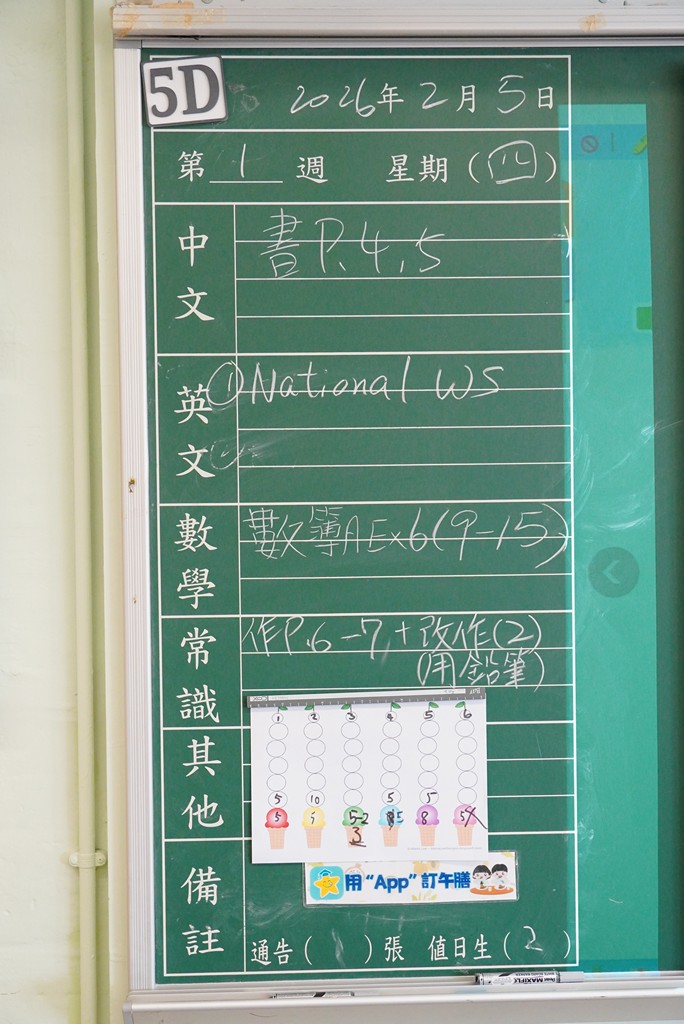 5D
2026年2月5日
第1週 星期(四)
中文
書P.4,5
英文
①National WS
數學
數簿AEx6(9-15)
常識
作P.6-7,+改作(2)
(用鉛筆)
其他
1 2 3 4 5 6
5 10 5 5
5 5 5-2 8
3
用“App”訂午膳
備註
通告(1)張 值日生(2)